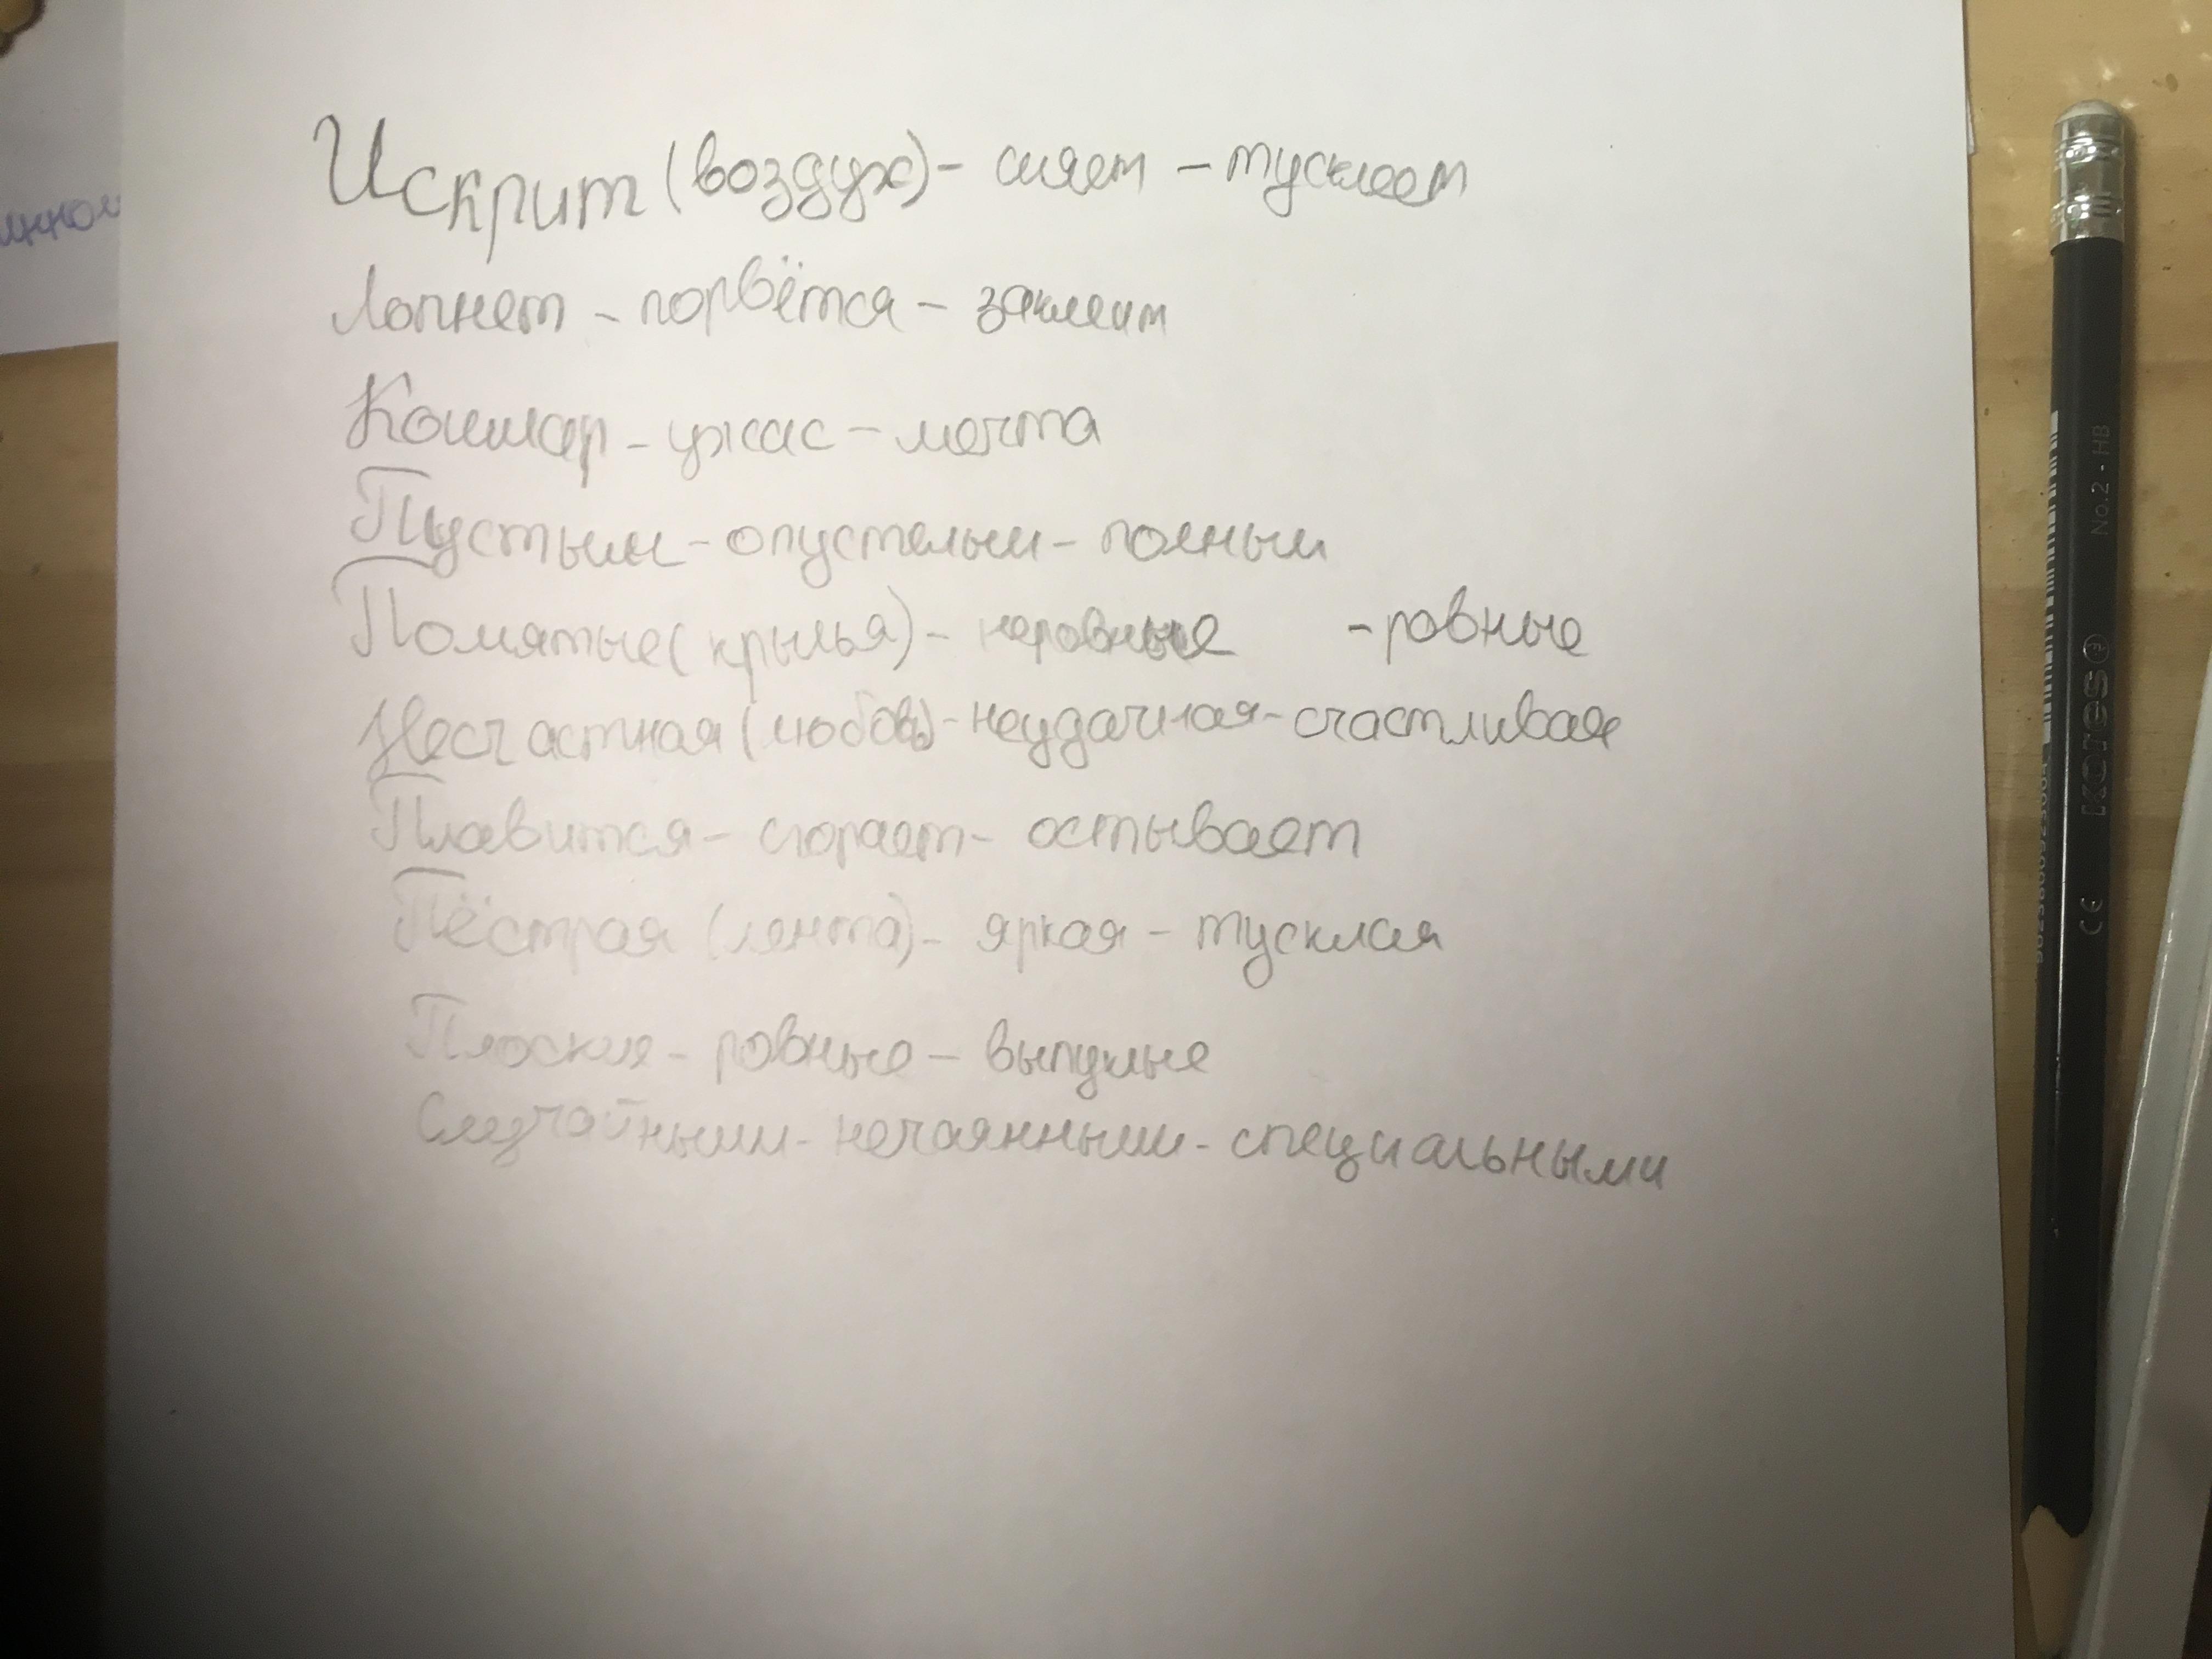 Искрит (воздух) - сияет - тускнеет
Лопнет - порвётся - заклеит
Кошмар - ужас - мечта
Пустым - опустелым - полным
Помятые (крылья) - неровные - ровные
Несчастная (любовь) - неудачная - счастливая
Плавится - сгорает - остывает
Пёстрая (лента) - яркая - тусклая
Плоские - ровные - выпуклые
Случайными - нечаянными - специальными
No.2 - HB
Kores
CE